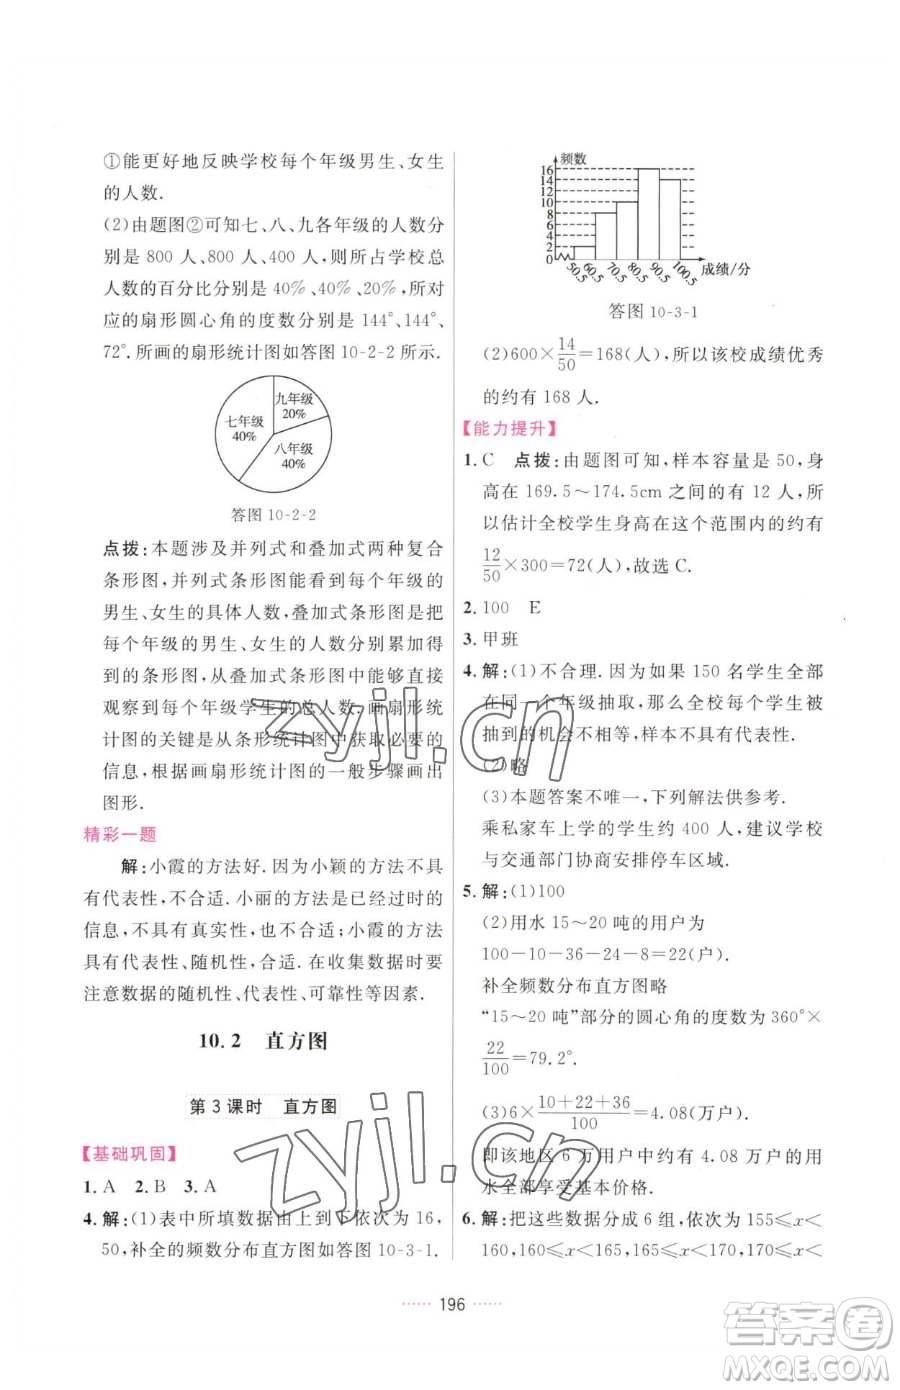 ①能更好地反映学校每个年级男生、女生
的人数.
(2)由题图②可知七、八、九各年级的人数分
别是 800 人、800 人、400 人,则所占学校总
人数的百分比分别是 40%、40%、20%,所对
应的扇形圆心角的度数分别是 144°、144°、
72°. 所画的扇形统计图如答图 10-2-2 所示.
九年级
20%
七年级
40%
八年级
40%
答图 10-2-2
点拨:本题涉及并列式和叠加式两种复合
条形图,并列式条形图能看到每个年级的
男生、女生的具体人数,叠加式条形图是把
每个年级的男生、女生的人数分别累加得
到的条形图,从叠加式条形图中能够直接
观察到每个年级学生的总人数. 画扇形统
计图的关键是从条形统计图中获取必要的
信息,根据画扇形统计图的一般步骤画出
图形.
精彩一题
解:小霞的方法好. 因为小颖的方法不具
有代表性,不合适. 小丽的方法是已经过时的
信息,不具有真实性,也不合适;小霞的方法
具有代表性、随机性,合适. 在收集数据时要
注意数据的随机性、代表性、可靠性等因素.
10.2 直方图
第 3 课时 直方图
【基础巩固】
1. A 2. B 3. A
4. 解:(1)表中所填数据由上到下依次为 16,
50,补全的频数分布直方图如答图 10-3-1.
频数
16
14
12
10
8
6
4
2
0
50.5
60.5
70.5
80.5
90.5
100.5
成绩/分
答图 10-3-1
(2)600×14/50=168(人),所以该校成绩优秀
的约有 168 人.
【能力提升】
1. C 点拨:由题图可知,样本容量是 50,身
高在 169.5～174.5cm 之间的有 12 人,所
以估计全校学生身高在这个范围内的约有
12/50×300=72(人),故选 C.
2. 100 E
3. 甲班
4. 解:(1)不合理. 因为如果 150 名学生全部
在同一个年级抽取,那么全校每个学生被
抽到的机会不相等,样本不具有代表性.
(2)略
(3)本题答案不唯一,下列解法供参考.
乘私家车上学的学生约 400 人,建议学校
与交通部门协商安排停车区域.
5. 解:(1)100
(2)用水 15～20 吨的用户为
100-10-36-24-8=22(户)
补全频数分布直方图略
“15～20 吨”部分的圆心角的度数为 360°×
22/100=79.2°.
(3)6×(10+22+36)/100=4.08(万户)
即该地区 6 万用户中约有 4.08 万户的用
水全部享受基本价格.
6. 解:把这些数据分成 6 组,依次为 155≤x<
160,160≤x<165,165≤x<170,170≤x<
196
zyjl.cn
zyjl.cn
答案圈
MXQE.COM